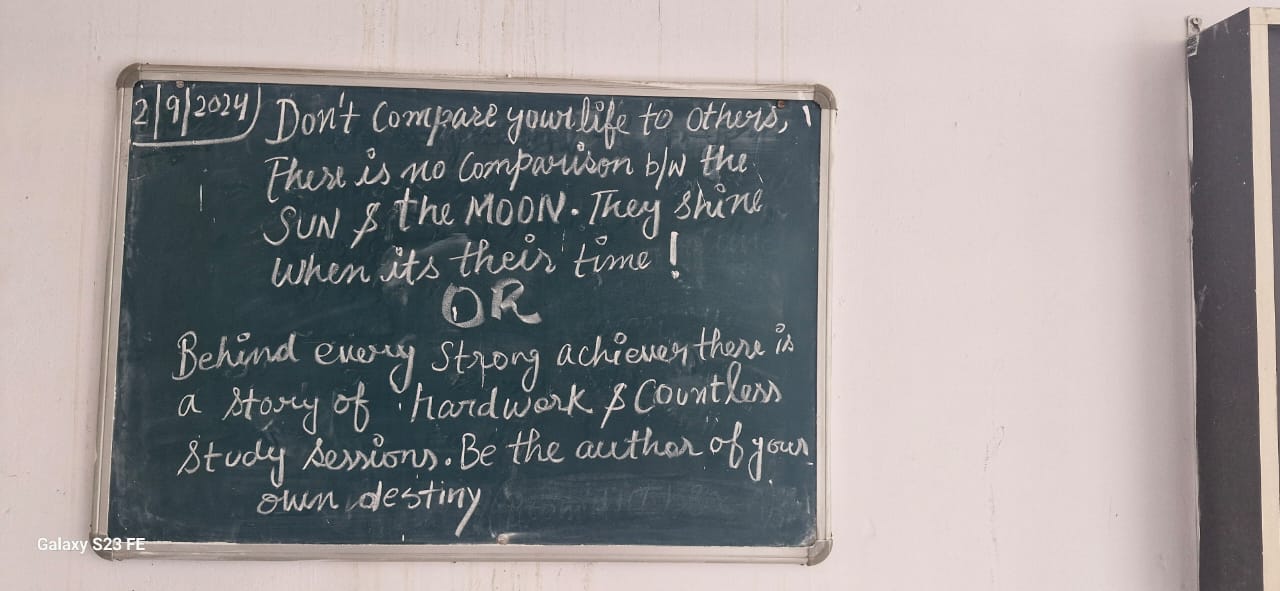 2/9/2024
Don't Compare your life to others,
There is no Comparison b/w the
SUN & the MOON. They shine
When its their time!
OR
Behind every Strong achiever there is
a story of hardwork & Countless
Study sessions. Be the author of your
own destiny
Galaxy S23 FE